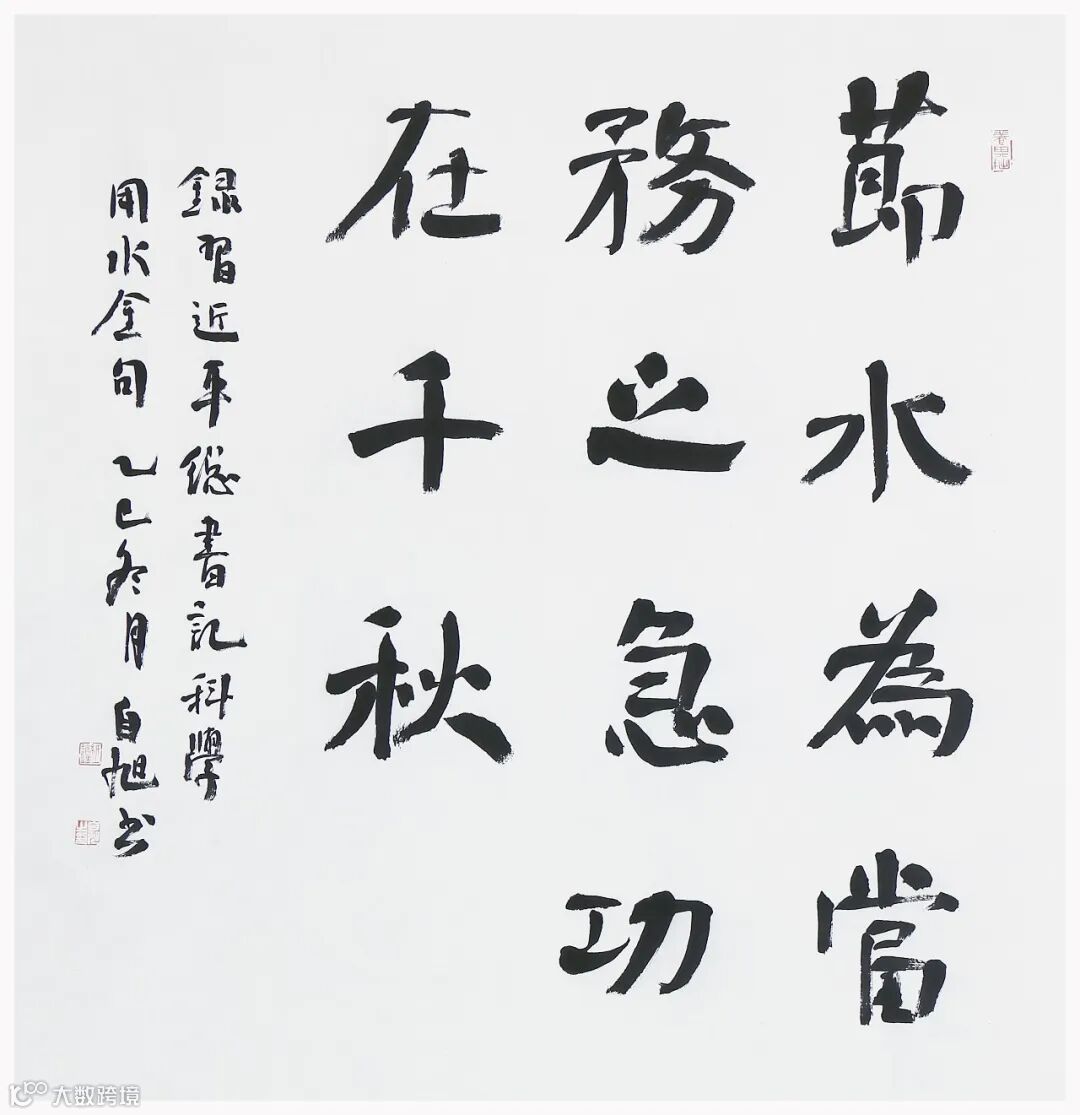 節水為當
務之急功
在千秋
録習近平總書記科學
用水金句 乙巳冬月 自旭书
大数跨境